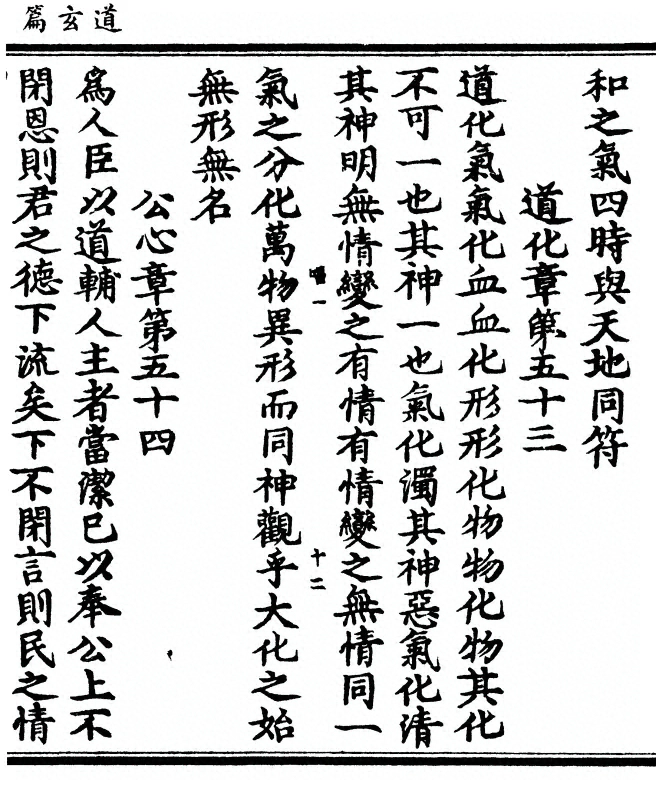 道玄篇
和之氣四時與天地同符
道化章第五十三
道化氣氣化血血化形形化物物化物其化
不可一也其神一也氣化濁其神惡氣化清
其神明無情變之有情有情變之無情同一
唱一
十二
氣之分化萬物異形而同神觀乎大化之始
無形無名
公心章第五十四
爲人臣以道輔人主者當潔已以奉公上不
閉恩則君之德下流矣下不閉言則民之情